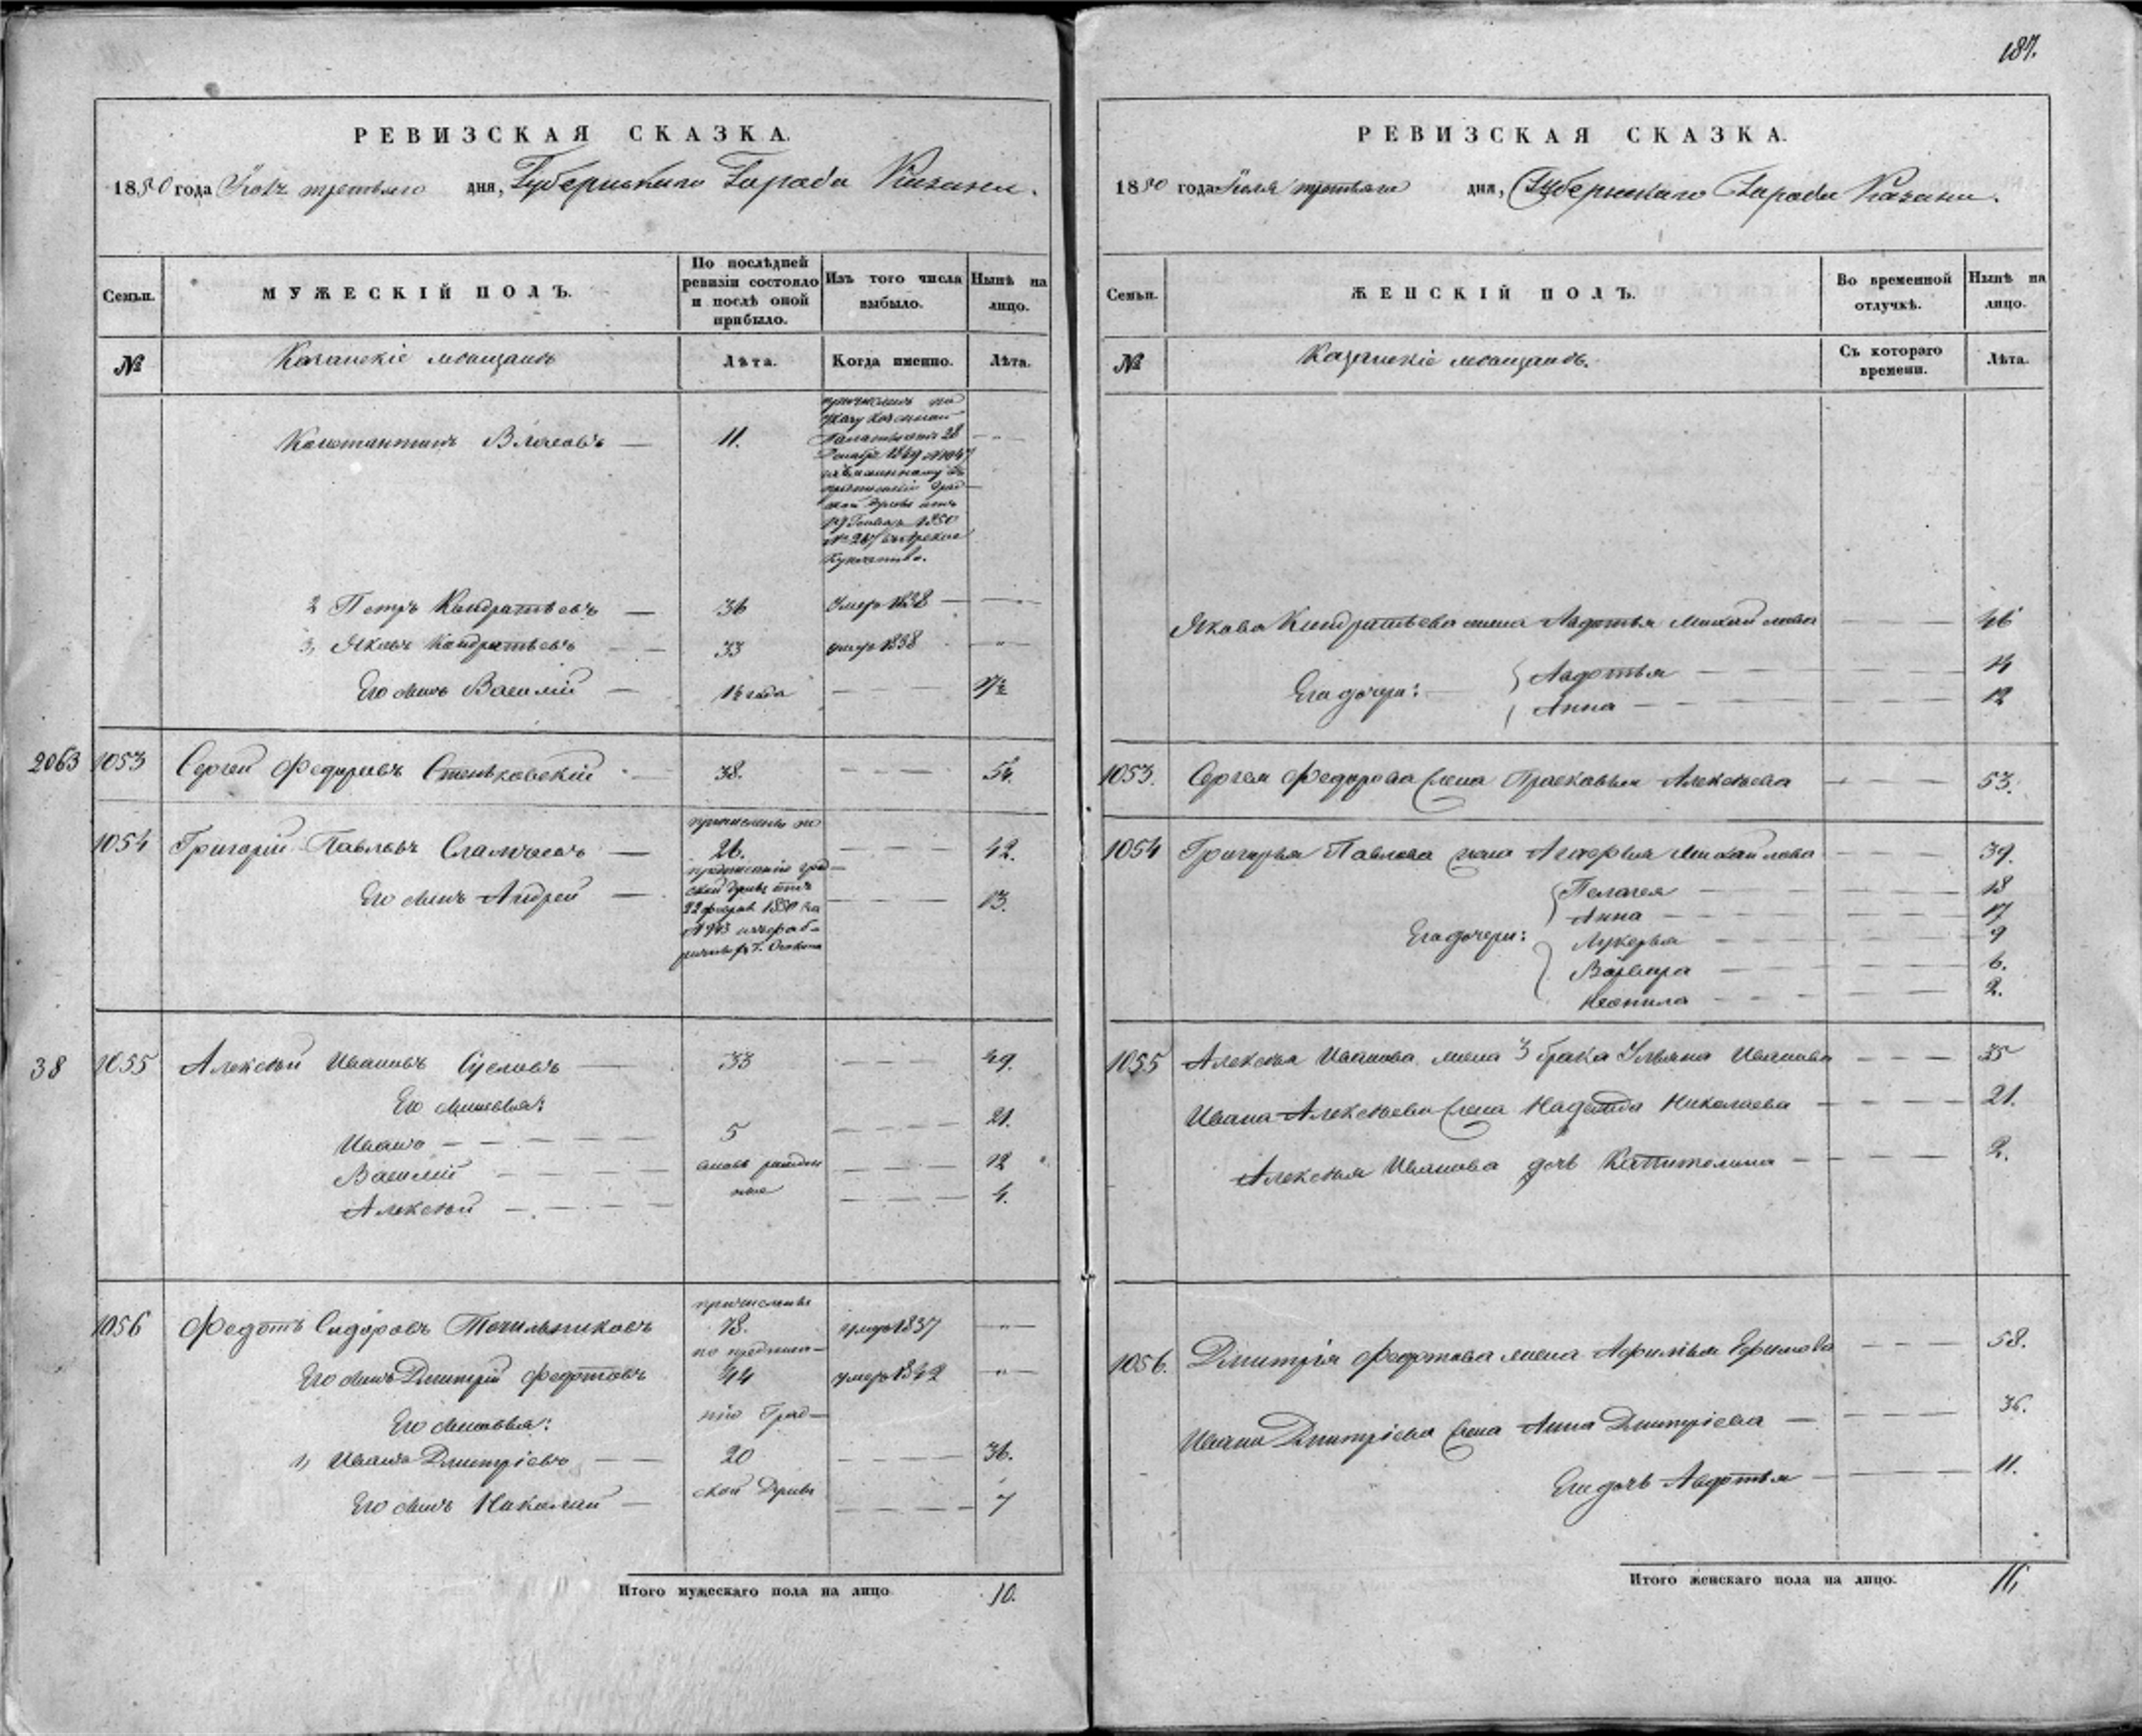 187.
РЕВИЗСКАЯ СКАЗКА.
1850 года Іюля третьяго дня, Губернскаго Города Казани.
Семьи. МУЖЕСКІЙ ПОЛЪ. По послѣдней ревизіи состояло и послѣ оной прибыло. Изъ того числа выбыло. Нынѣ на лицо.
№ Казанскіе мѣщане Лѣта. Когда именно. Лѣта.
Константинъ Власовъ — 11.
причисленъ по
указу Казенной
Палаты отъ 28
Декабр 1849 № 1047
предписанію Град
ской Думы отъ
19 Генвар 1850
№ 287
Купечество.
2 Петръ Кондратьевъ — 36 умеръ 1838 — "
3, Яковъ Кондратьевъ — 33 умеръ 1838 "
Его сынъ Василій — 1½ года — 17½
2063 1053 Сергей Федоровъ 38. — 54.
причисленъ по
1054 Григорій Павловъ — 26. — 42.
предписанію град
Его сынъ Андрей — ской Думы отъ — 13.
22 Феврал 1850 за
№ 943
38 1055 Алексѣй Ивановъ Сусловъ — 33 — 49.
Его сыновья:
Иванъ — 5 — 21.
Василій — рожден — 12
Алексѣй — ные — 4.
причислены
1056 Федотъ Сидоровъ Точильниковъ 78. умеръ 1837 "
по предписа—
Его сынъ Дмитрій Федотовъ 44 умеръ 1842 "
Его сыновья: нію Град—
1, Иванъ Дмитріевъ — 20 — 36.
Его сынъ Николай — ской Думы — 7
Итого мужескаго пола на лицо 10.
РЕВИЗСКАЯ СКАЗКА.
1850 года Іюля третьяго дня, Губернскаго Города Казани.
Семьи. ЖЕНСКІЙ ПОЛЪ. Во временной отлучкѣ. Нынѣ на лицо.
№ Казанскіе мѣщане. Съ котораго времени. Лѣта.
Якова Кондратьева жена Авдотья Михайлова — 46
Его дочери: Авдотья — 14
Анна — 12
1053. Сергея Федорова жена Прасковья Алексѣева — 53.
1054 Григорья Павлова жена Агафья Михайлова — 39.
Пелагея — 18
Анна — 17
Его дочери: Лукерья — 9
Варвара — 6.
Неонила — 2.
1055 Алексѣя Иванова жена 3 брака Ульяна Иванова — 35
Ивана Алексѣева жена Надежда Николаева — 21.
Алексѣя Иванова дочь Капитолина — 2.
1056. Дмитрія Федотова жена Афимья Ефимова — 58.
Ивана Дмитріева жена Анна Дмитріева — 36.
Его дочь Авдотья — 11.
Итого женскаго пола на лицо: 16,